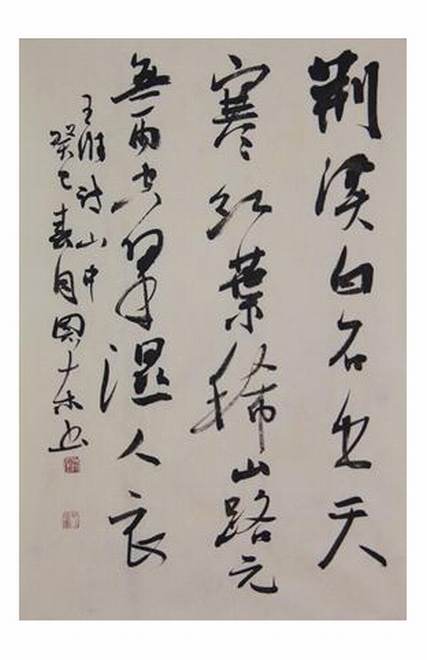 荆溪白石出天
寒红葉稀山路元
無雨空翠湿人衣
王维诗山中
癸巳春月 书